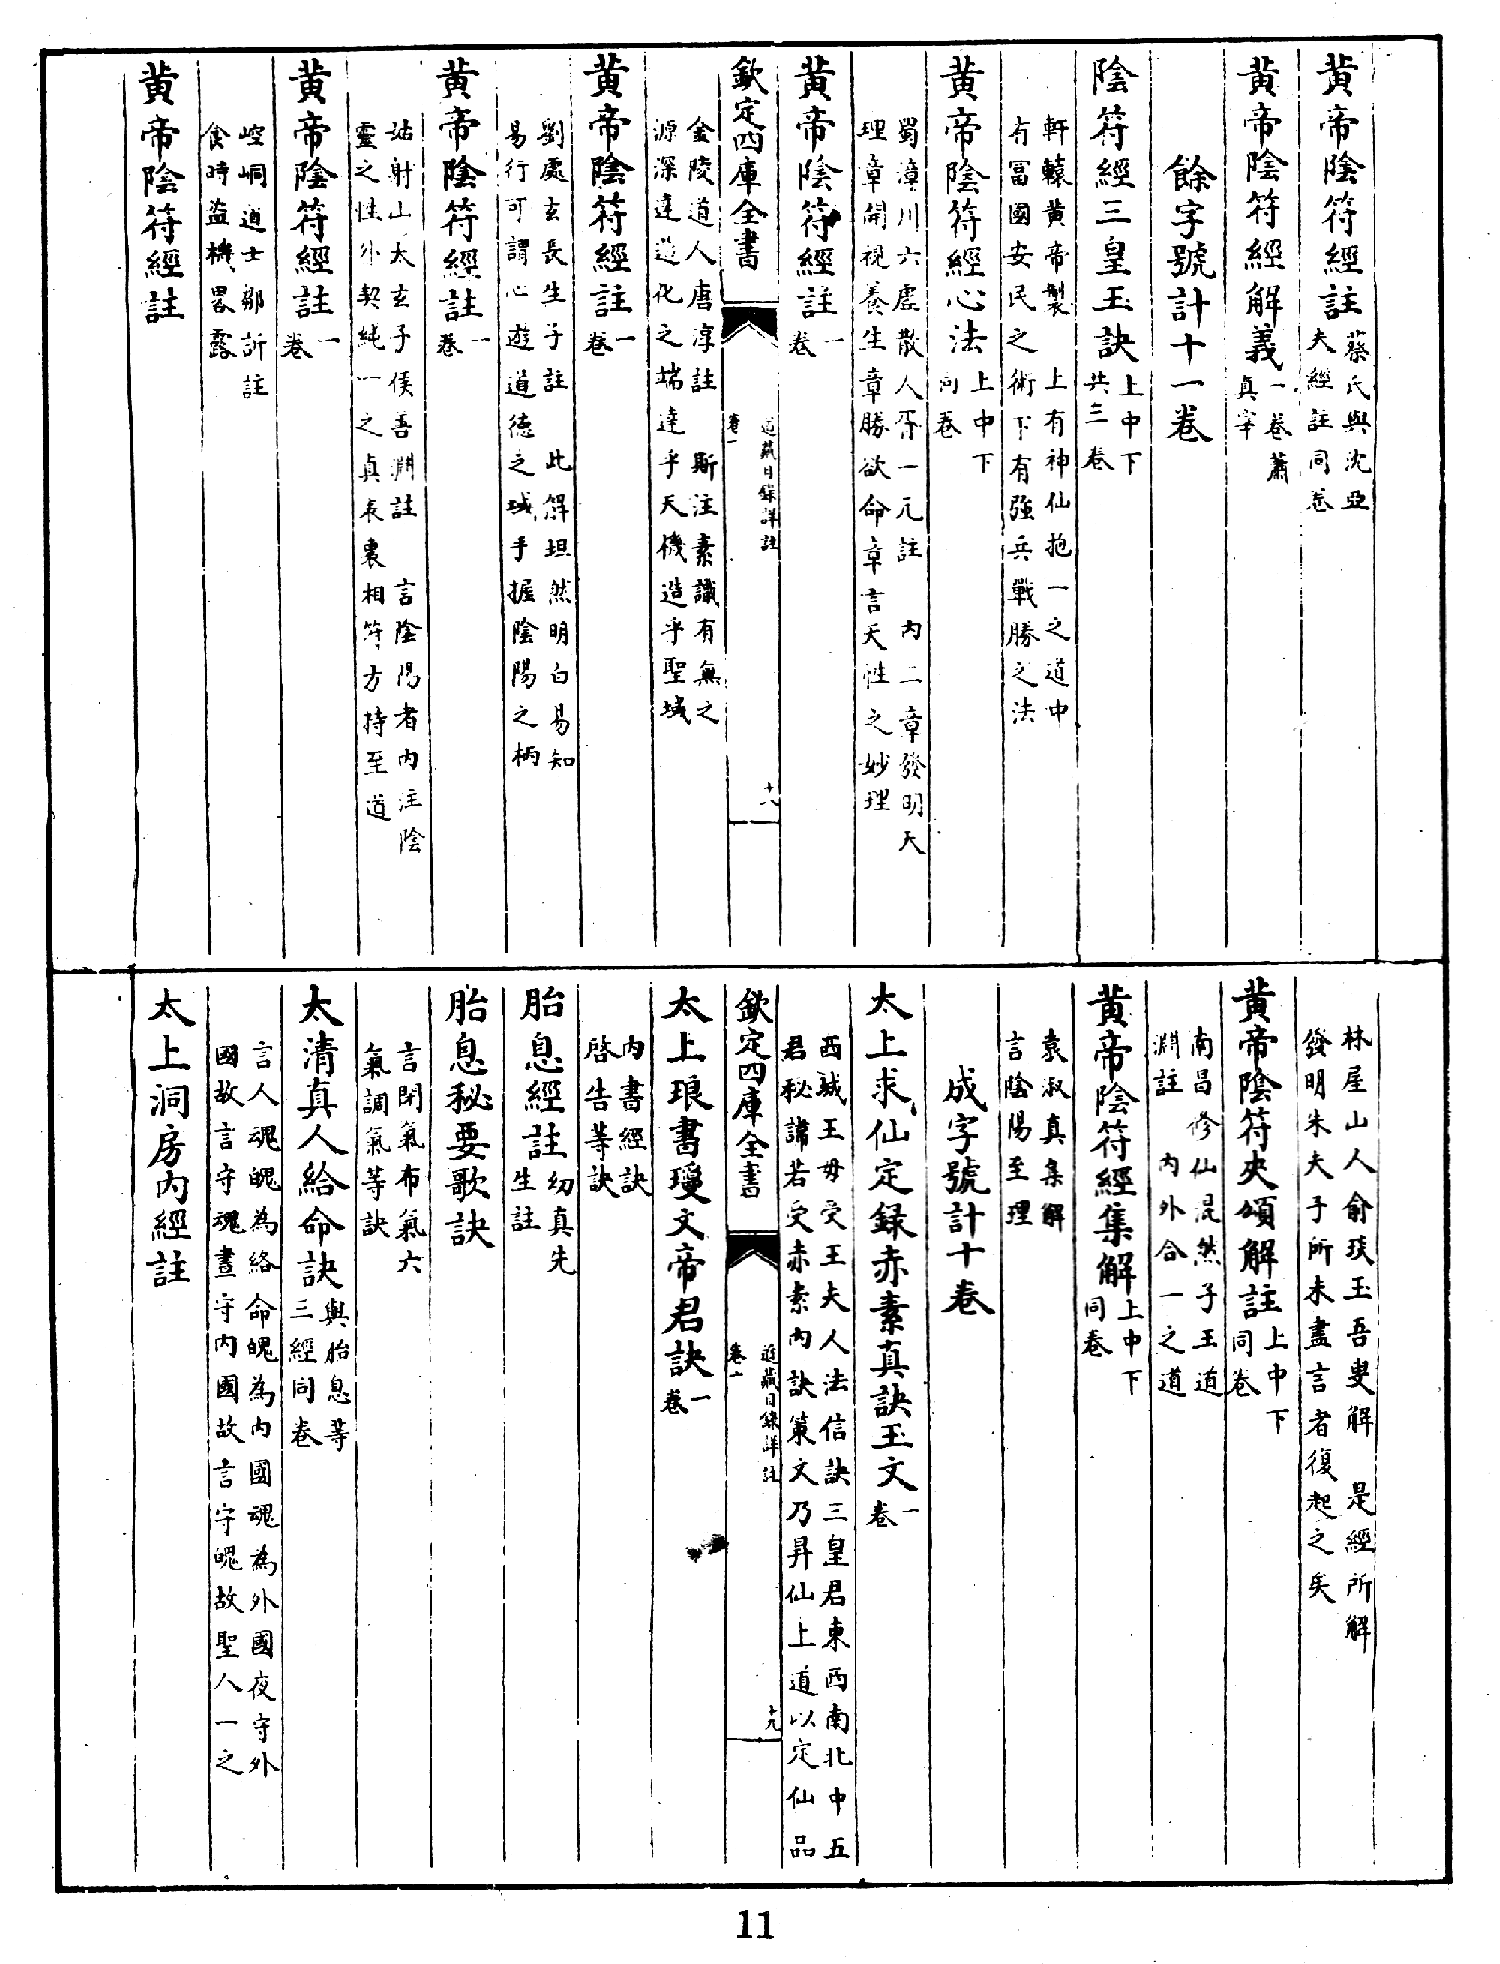 黄帝陰符經註蔡氏與沈亞夫經註同卷
黄帝陰符經解義一卷蕭真宰
餘字號計十一卷
陰符經三皇玉訣上中下共三卷
軒轅黄帝製　上有神仙抱一之道中
有冨國安民之術下有強兵戰勝之法
黄帝陰符經心法上中下同卷
蜀漳川六虚散人胥一元註　内二章發明天
理章開視養生章勝欲命章言天性之妙理
黄帝陰符經註一卷
欽定四庫全書
道藏目錄詳註
卷一
十八
金陵道人唐淳註　斯注素識有無之
源深達造化之端達乎天機造乎聖域
黄帝陰符經註一卷
劉處玄長生子註　此解坦然明白易知
易行可謂心遊道德之域手握陰陽之柄
黄帝陰符經註一卷
姑射山太玄子侯善淵註　言陰陽者内注陰
靈之性外契純一之真表裏相符方持至道
黄帝陰符經註一卷
崆峒道士鄒訢註
食時盗機畧露
黄帝陰符經註
林屋山人俞琰玉吾叟解　是經所解
發明朱夫子所未盡言者復起之矣
黄帝陰符經夾頌解註上中下同卷
南昌修仙混然子王道
淵註　内外合一之道
黄帝陰符經集解上中下同卷
袁淑真集解
言陰陽至理
成字號計十卷
太上求仙定録赤素真訣玉文一卷
西誠王母受王夫人法信訣三皇君東西南北中五
君秘諱若受赤素内訣策文乃昇仙上道以定仙品
欽定四庫全書
道藏目錄詳註
卷一
十九
太上琅書瓊文帝君訣一卷
内書經訣
啓告等訣
胎息經註幻真先生註
胎息秘要歌訣
言閉氣布氣六
氣調氣等訣
太清真人給命訣與胎息等三經同卷
言人魂魄為絡命魄為内國魂為外國夜守外
國故言守魂晝守内國故言守魄故聖人一之
太上洞房内經註
11